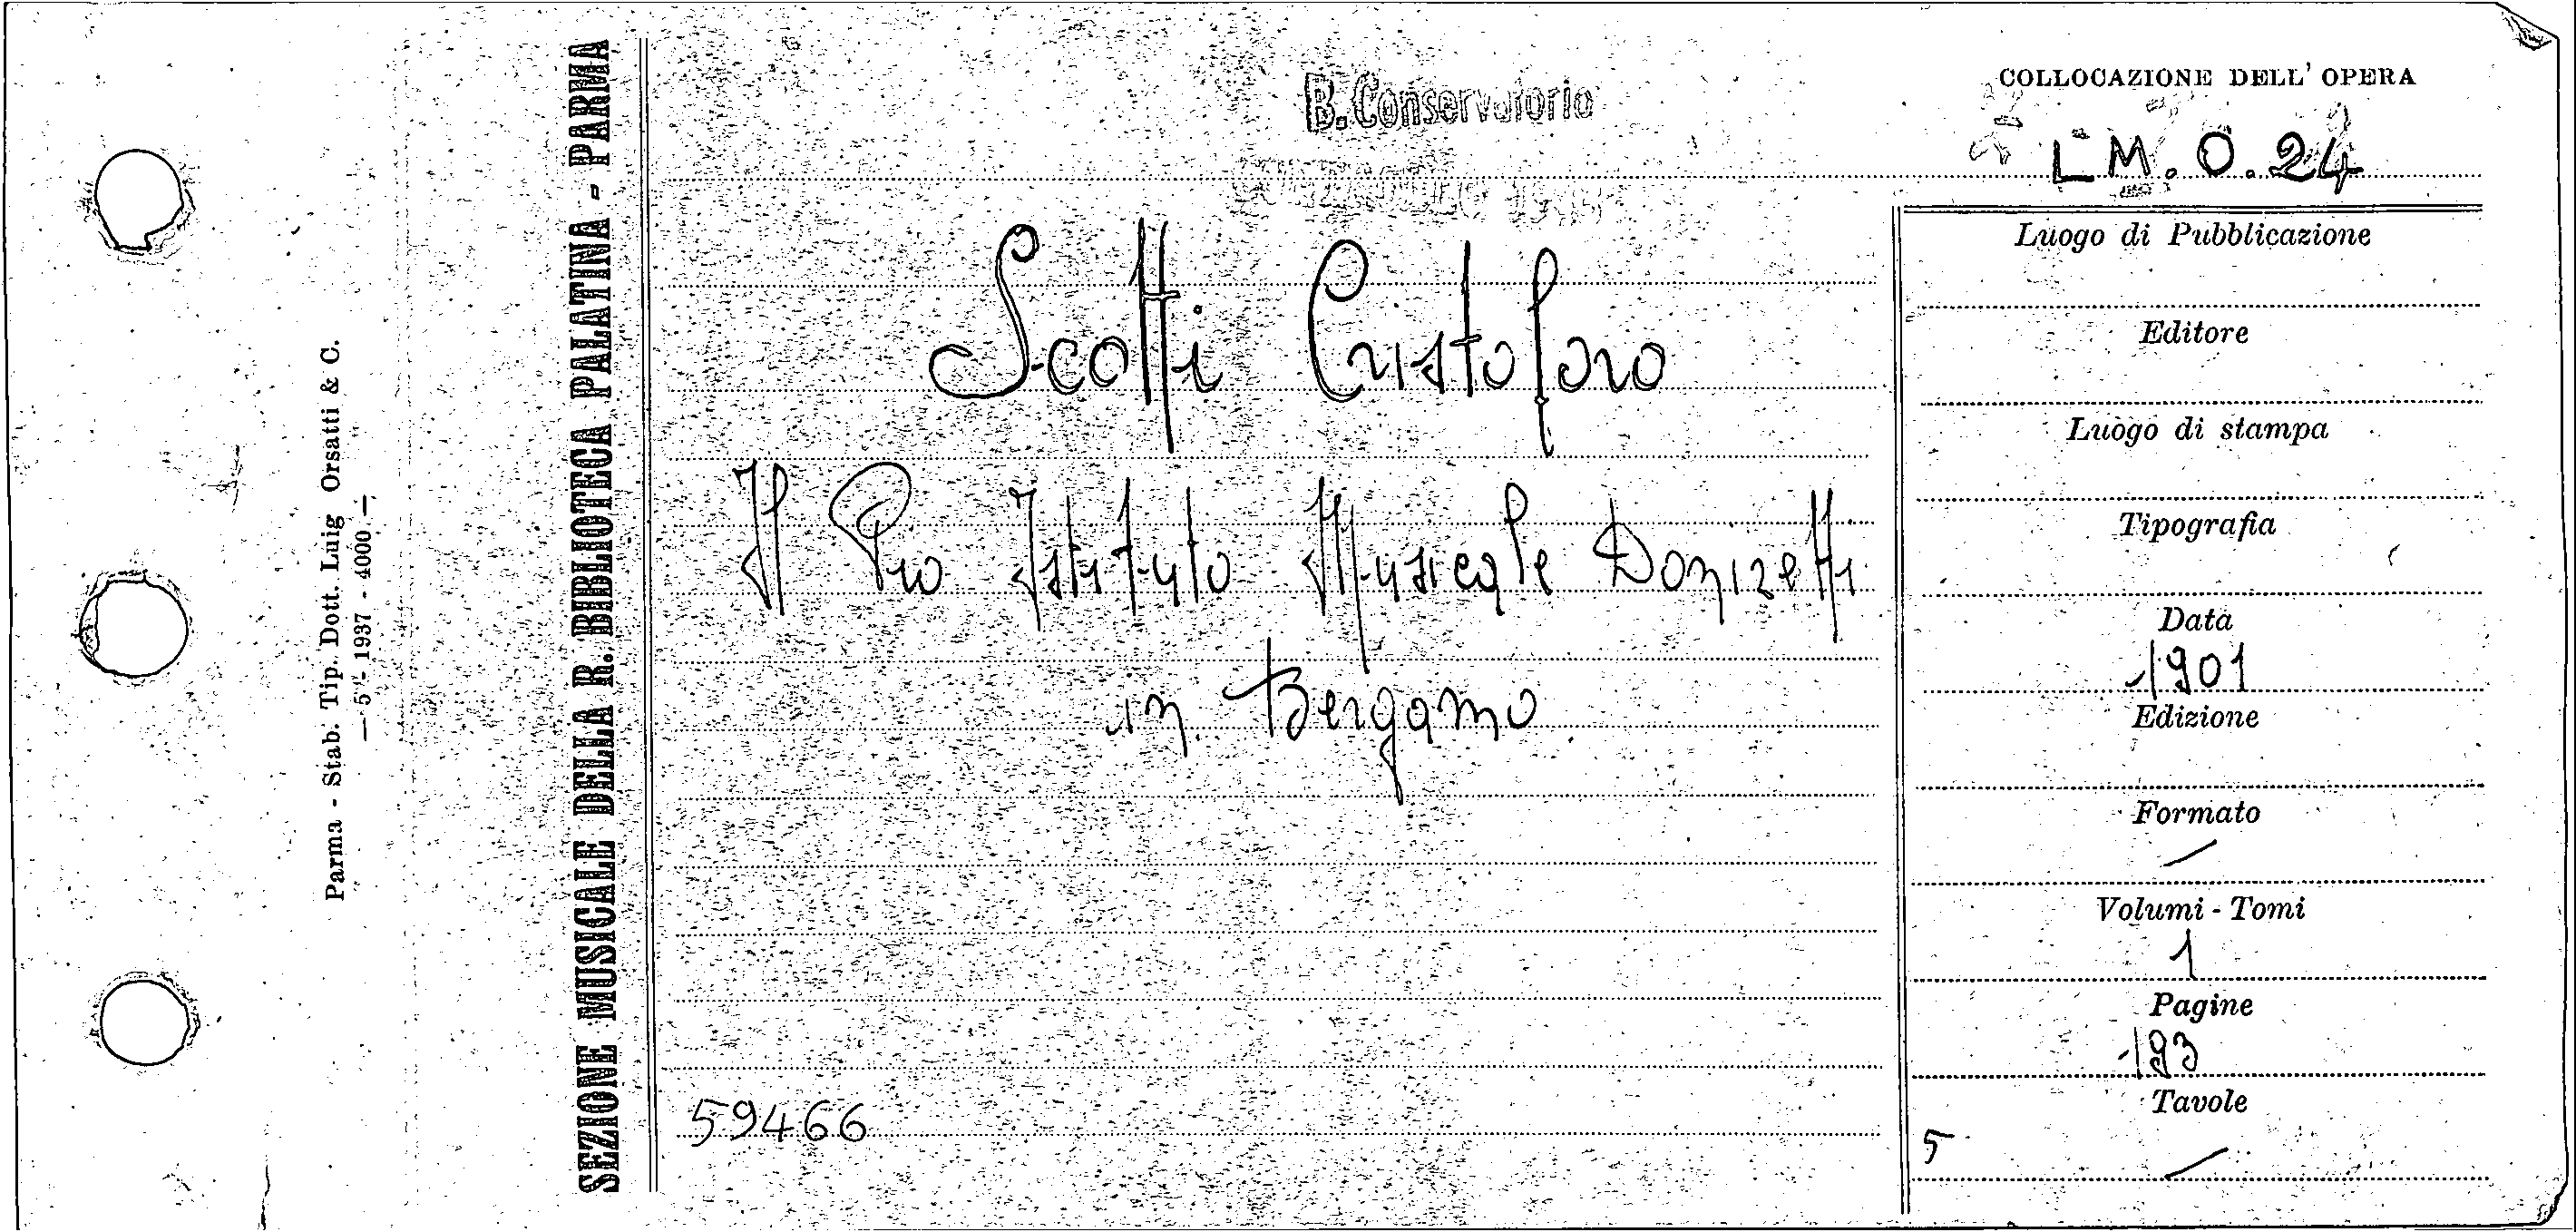 Parma - Stab. Tip. Dott. Luig Orsatti & C.
— 5 - 1937 - 4000 —
SEZIONE MUSICALE DELLA R. BIBLIOTECA PALATINA - PARMA
B. Conservatorio
COLLOCAZIONE DELL' OPERA
LM. O. 24
Scotti Cristoforo
Il Pio Istituto Musicale Donizetti
in Bergamo
59466
Luogo di Pubblicazione
Editore
Luogo di stampa
Tipografia
Data
1901
Edizione
Formato
Volumi - Tomi
1
Pagine
193
Tavole
5